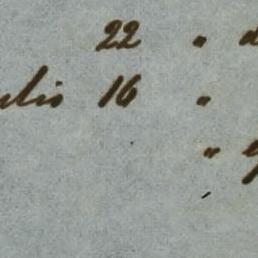 22 "
ulio 16 "
"